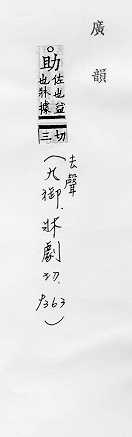 廣韻
助佐也益也牀據切三
去聲
(九御．牀劇切．P363)